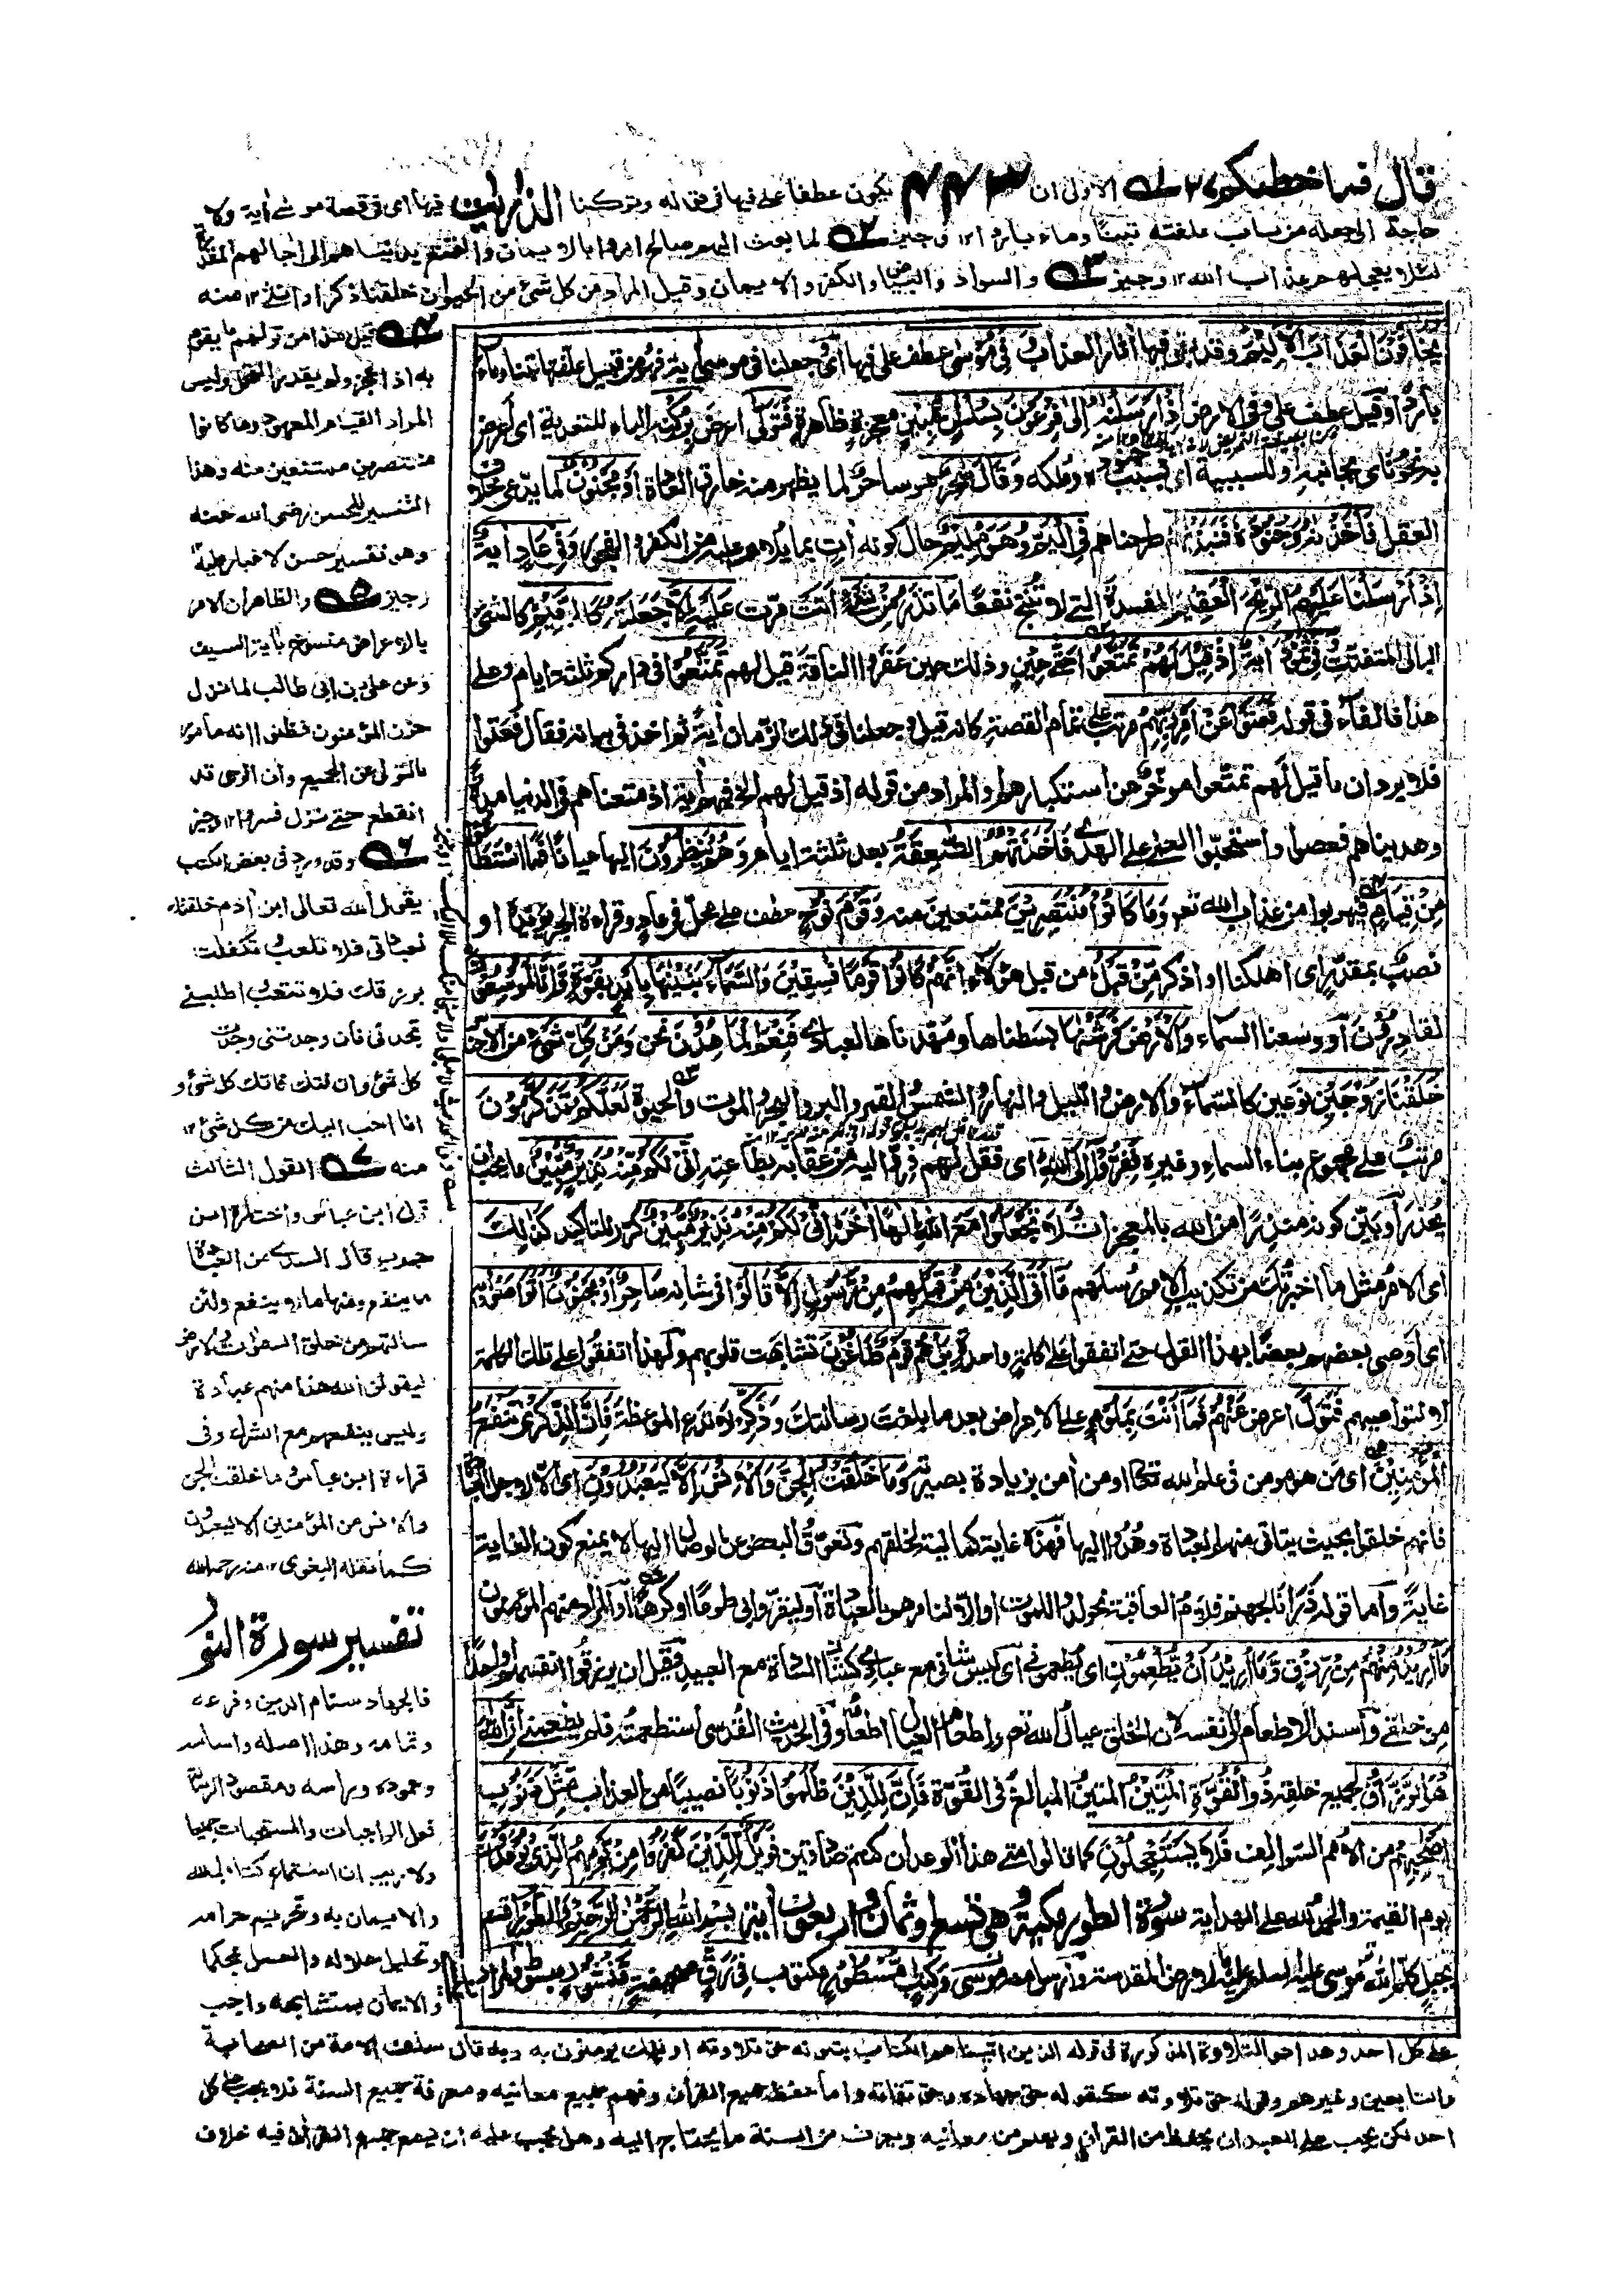 قال فما خطبكم ٢٧ الاول ان ٤٤٣ يكون عطفا على فيها فى قوله وتركنا الذاريات فيها اى فى قصة موسى أية ولا
حاجة الى جعله من باب علفته تبنا وماء باردا ١٢ وجيز لما بعث اليهم صالح امروا بالايمان والتمتع الى اجالهم
لئلا يعجلهم عذاب الله ١٢ وجيز والسواد والبياض والكفر والايمان وقيل المراد من كل شئ من الحيوان خلقنا ذكرا وانثى ١٢ منه
يَخَافُوْنَ الْعَذَابَ الْاَلِيْمَ وقد بقى فيها أثار العذاب وَفِيْ مُوْسٰى عطف على فيها اى وجعلنا فى موسى أية فهو من قبيل علفتها تبنا وماء
باردا وقيل عطف على وفى الارض اِذْ اَرْسَلْنٰهُ اِلٰى فِرْعَوْنَ بِسُلْطٰنٍ مُّبِيْنٍ معجزة ظاهرة فَتَوَلّٰى اعرض بِرُكْنِهٖ الباء للتعدية اى اعرض
بجانبه او للسببية اى بسبب جنوده وملكه وَقَالَ هو سٰحِرٌ لما يظهر منه خارق العادة اَوْ مَجْنُوْنٌ لما يدعى خلاف
العقل فَاَخَذْنٰهُ وَجُنُوْدَهٗ فَنَبَذْنٰهُمْ طرحناهم فِي الْيَمِّ وَهُوَ مُلِيْمٌ حال كونه أت بما يلام عليه من الكفر والفجور وَفِيْ عَادٍ أية
اِذْ اَرْسَلْنَا عَلَيْهِمُ الرِّيْحَ الْعَقِيْمَ المفسدة التى لا تنتج نفعا مَا تَذَرُ مِنْ شَيْءٍ اَتَتْ مرّت عَلَيْهِ اِلَّا جَعَلَتْهُ كَالرَّمِيْمِ كالشئ
البالى المتفتت وَفِيْ ثَمُوْدَ أية اِذْ قِيْلَ لَهُمْ تَمَتَّعُوْا حَتّٰى حِيْنٍ وذلك حين عقروا الناقة قيل لهم تمتعوا فى داركم ثلثة ايام وعلى
هذا فالفاء فى قوله فَعَتَوْا عَنْ اَمْرِ رَبِّهِمْ مرتب على تمام القصة كانه قيل وجعلنا فى ذلك الزمان أية ثم اخذ فى بيانه فقال فعتوا
فلا يرد ان ما قيل لهم تمتعوا مؤخر عن استكبارهم او المراد من قوله اذ قيل لهم الخ أية اذ متعناهم فى الدنيا مدة
وهديناهم فعصوا واستحبوا العمى على الهدى فَاَخَذَتْهُمُ الصّٰعِقَةُ بعد ثلثة ايام وَهُمْ يَنْظُرُوْنَ اليها عيانا فَمَا اسْتَطَاعُوْا
مِنْ قِيَامٍ فيهربوا من عذاب الله تعـ وَمَا كَانُوْا مُنْتَصِرِيْنَ ممتنعين منه وَقَوْمَ نُوْحٍ عطف على محل فى عاد وقراءة الجر او
نصب بمقدر اى اهلكنا او اذكر مِّنْ قَبْلُ من قبل هؤلاء اِنَّهُمْ كَانُوْا قَوْمًا فٰسِقِيْنَ وَالسَّمَآءَ بَنَيْنٰهَا بِاَيْدٍ بقوة وَّاِنَّا لَمُوْسِعُوْنَ
لقادرون او وسعنا السماء وَالْاَرْضَ فَرَشْنٰهَا بسطناها ومهدناها لعبادى فَنِعْمَ الْمٰهِدُوْنَ نحن وَمِنْ كُلِّ شَيْءٍ من الاجناس
خَلَقْنَا زَوْجَيْنِ نوعين كالسماء والارض والليل والنهار والشمس والقمر والبر والبحر والموت والحيوة لَعَلَّكُمْ تَذَكَّرُوْنَ
مرتب على مجموع بناء السماء وغيره فَفِرُّوْا اِلَى اللهِ اى فقل لهم فروا اليه من عقابه بطاعته اِنِّيْ لَكُمْ مِّنْهُ نَذِيْرٌ مُّبِيْنٌ ما يجب ان
يحذر او بين كونه منذرا من الله بالمعجزات وَلَا تَجْعَلُوْا مَعَ اللهِ اِلٰهًا اٰخَرَ اِنِّيْ لَكُمْ مِّنْهُ نَذِيْرٌ مُّبِيْنٌ كرر للتاكيد كَذٰلِكَ
اى الامر مثل ما اخبرتك من تكذيب الامم رسلهم مَآ اَتَى الَّذِيْنَ مِنْ قَبْلِهِمْ مِّنْ رَّسُوْلٍ اِلَّا قَالُوْا فى شانه سَاحِرٌ اَوْ مَجْنُوْنٌ اَتَوَاصَوْا بِهٖ
اى اوصى بعضهم بعضا بهذا القول حتى اتفقوا على كلمة واحدة بَلْ هُمْ قَوْمٌ طَاغُوْنَ تشابهت قلوبهم ولهذا اتفقوا على تلك الكلمة
او لتواصيهم فَتَوَلَّ اعرض عَنْهُمْ فَمَآ اَنْتَ بِمَلُوْمٍ على الاعراض بعد ما بلغت رسالتك وَذَكِّرْ ولا تدع الموعظة فَاِنَّ الذِّكْرٰى تَنْفَعُ
الْمُؤْمِنِيْنَ اى من هو مؤمن فى علم الله تعالى او من أمن بزيادة بصيرته وَمَا خَلَقْتُ الْجِنَّ وَالْاِنْسَ اِلَّا لِيَعْبُدُوْنِ اى الا لاجل العبادة
فانهم خلقوا بحيث يتاتى منهم العبادة وهدوا اليها فهذه غاية كمالية لخلقهم وتعوق البعض عن الوصول اليها لا يمنع كون الغاية
غاية واما قوله ذرأنا لجهنم فلام العاقبة نحو لدوا للموت او الا لنامرهم بالعبادة او ليقروا بى طوعا او كرها او المراد منهم المؤمنون
مَآ اُرِيْدُ مِنْهُمْ مِّنْ رِّزْقٍ وَّمَآ اُرِيْدُ اَنْ يُّطْعِمُوْنِ اى يطعمونى اى ليس شانى مع عبادى كشان السادة مع العبيد فقيل ان يرزقوا انفسهم او احدا
من خلقى واسند الاطعام الى نفسه لان الخلق عيال الله تعـ واطعام العيال اطعامه وفى الحديث القدسى استطعمتك فلم تطعمنى اِنَّ اللهَ
هُوَ الرَّزَّاقُ لجميع خلقه ذُو الْقُوَّةِ الْمَتِيْنُ المتين المبالغ فى القوة فَاِنَّ لِلَّذِيْنَ ظَلَمُوْا ذَنُوْبًا نصيبا من العذاب مِّثْلَ ذَنُوْبِ
اَصْحٰبِهِمْ من الامم السوالف فَلَا يَسْتَعْجِلُوْنِ كما قالوا متى هذا الوعد ان كنتم صادقين فَوَيْلٌ لِّلَّذِيْنَ كَفَرُوْا مِنْ يَّوْمِهِمُ الَّذِيْ يُوْعَدُوْنَ
يوم القيمة والحمد لله على الهداية سورة الطور مكية وهى تسع او ثمان واربعون أية بسم الله الرحمن الرحيم وَالطُّوْرِ اقسم
بجبل كلم الله موسى عليه السلام عليه بالارض المقدسة وَكِتٰبٍ مَّسْطُوْرٍ مكتوب فِيْ رَقٍّ صحيفة مَّنْشُوْرٍ مبسوط
قيل هذا من قولهم ما يقوم
به اذا عجز ولم يقدر التحمل وليس
المراد القيام المعهود وما كانوا
منتصرين ممتنعين منه وهذا
التفسير للحسن رضى الله عنه
وهو تفسير حسن لا غبار عليه
وجيز والظاهر ان الامر
بالاعراض منسوخ بأية السيف
وعن على بن ابى طالب لما نزل
حزن المؤمنون فظنوا انه مأمور
بالتولى عن الجميع وان الوحى قد
انقطع حتى نزل فسروا ١٢ وجيز
وقد ورد فى بعض الكتب
يقول الله تعالى ابن أدم خلقتك
لعبادتى فلا تلعب وتكفلت
برزقك فلا تتعب اطلبنى
تجدنى فان وجدتنى وجدت
كل شئ وان فتك فاتك كل شئ و
انا احب اليك من كل شئ ١٢
منه القول الثالث
قول ابن عباس واختاره ابن
جرير قال السدى من العبادة
ما ينفع ومنها ما لا ينفع ولئن
سالتهم من خلق السموات والارض
ليقولن الله هذا منهم عبادة
وليس ينفعهم مع الشرك وفى
قراءة ابن عباس ما خلقت الجن
والانس من المؤمنين الا ليعبدون
كما نقله البغوى ١٢ منه رحمه الله
تفسير سورة النور
فالجهاد سنام الدين وفرعه
وتمامه وهذا اصله واساسه
وعموده وراسه ومقصود الرسالة
فعل الواجبات والمستحبات جميعا
ولا ريب ان استماع كتاب الله
والايمان به وتحريم حرامه
وتحليل حلاله والعمل بمحكمه
والايمان بمتشابهه واجب
على كل احد وهذا هو التلاوة المذكورة فى قوله الذين اتيناهم الكتاب يتلونه حق تلاوته اولئك يؤمنون به وبه قال سلف الامة من الصحابة
والتابعين وغيرهم وقوله حق تلاوته كقوله حق جهاده وحق تقاته واما حفظ جميع القرأن وفهم جميع معانيه ومعرفة جميع السنة فلا يجب على كل
احد لكن يجب على العبد ان يحفظ من القرأن ويعلم من معانيه ويعرف من السنة ما يحتاج اليه وهل يجب عليه ان يسمع جميع القرأن فيه خلاف